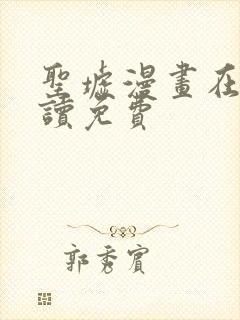 聖墟漫畫在
讀免費
郭秀賓